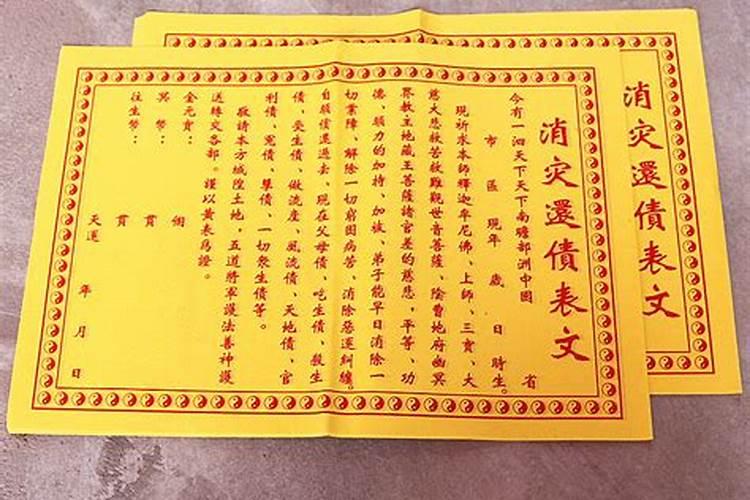 消灾還債表文
今有一泗天下天下南瞻部洲中國 省
市 區 現年 歲 日 時生。
現祈求本師釋迦牟尼佛、上師、三寶、大
慈大悲救苦救難觀世音菩薩、陰曹地府幽冥
界教主地藏王菩薩諸官差的慈悲，平等、功
德、願力的加持、加被、弟子能早日消除一
切業障、解除一切窮困病苦、消除惡運糾纏。
自願償還過去、現在父母債、吃生債、殺生
債、受生債、做流產、風流債、天地債、官
利債、冤債、孽債、一切衆生債等。
敬請本方城隍土地，五道將軍護法善神護
送轉交各部。謹以黃表爲證。
金元寶： 個
冥幣： 貫
往生幣： 貫
天運 年 月 日
消灾還債表文